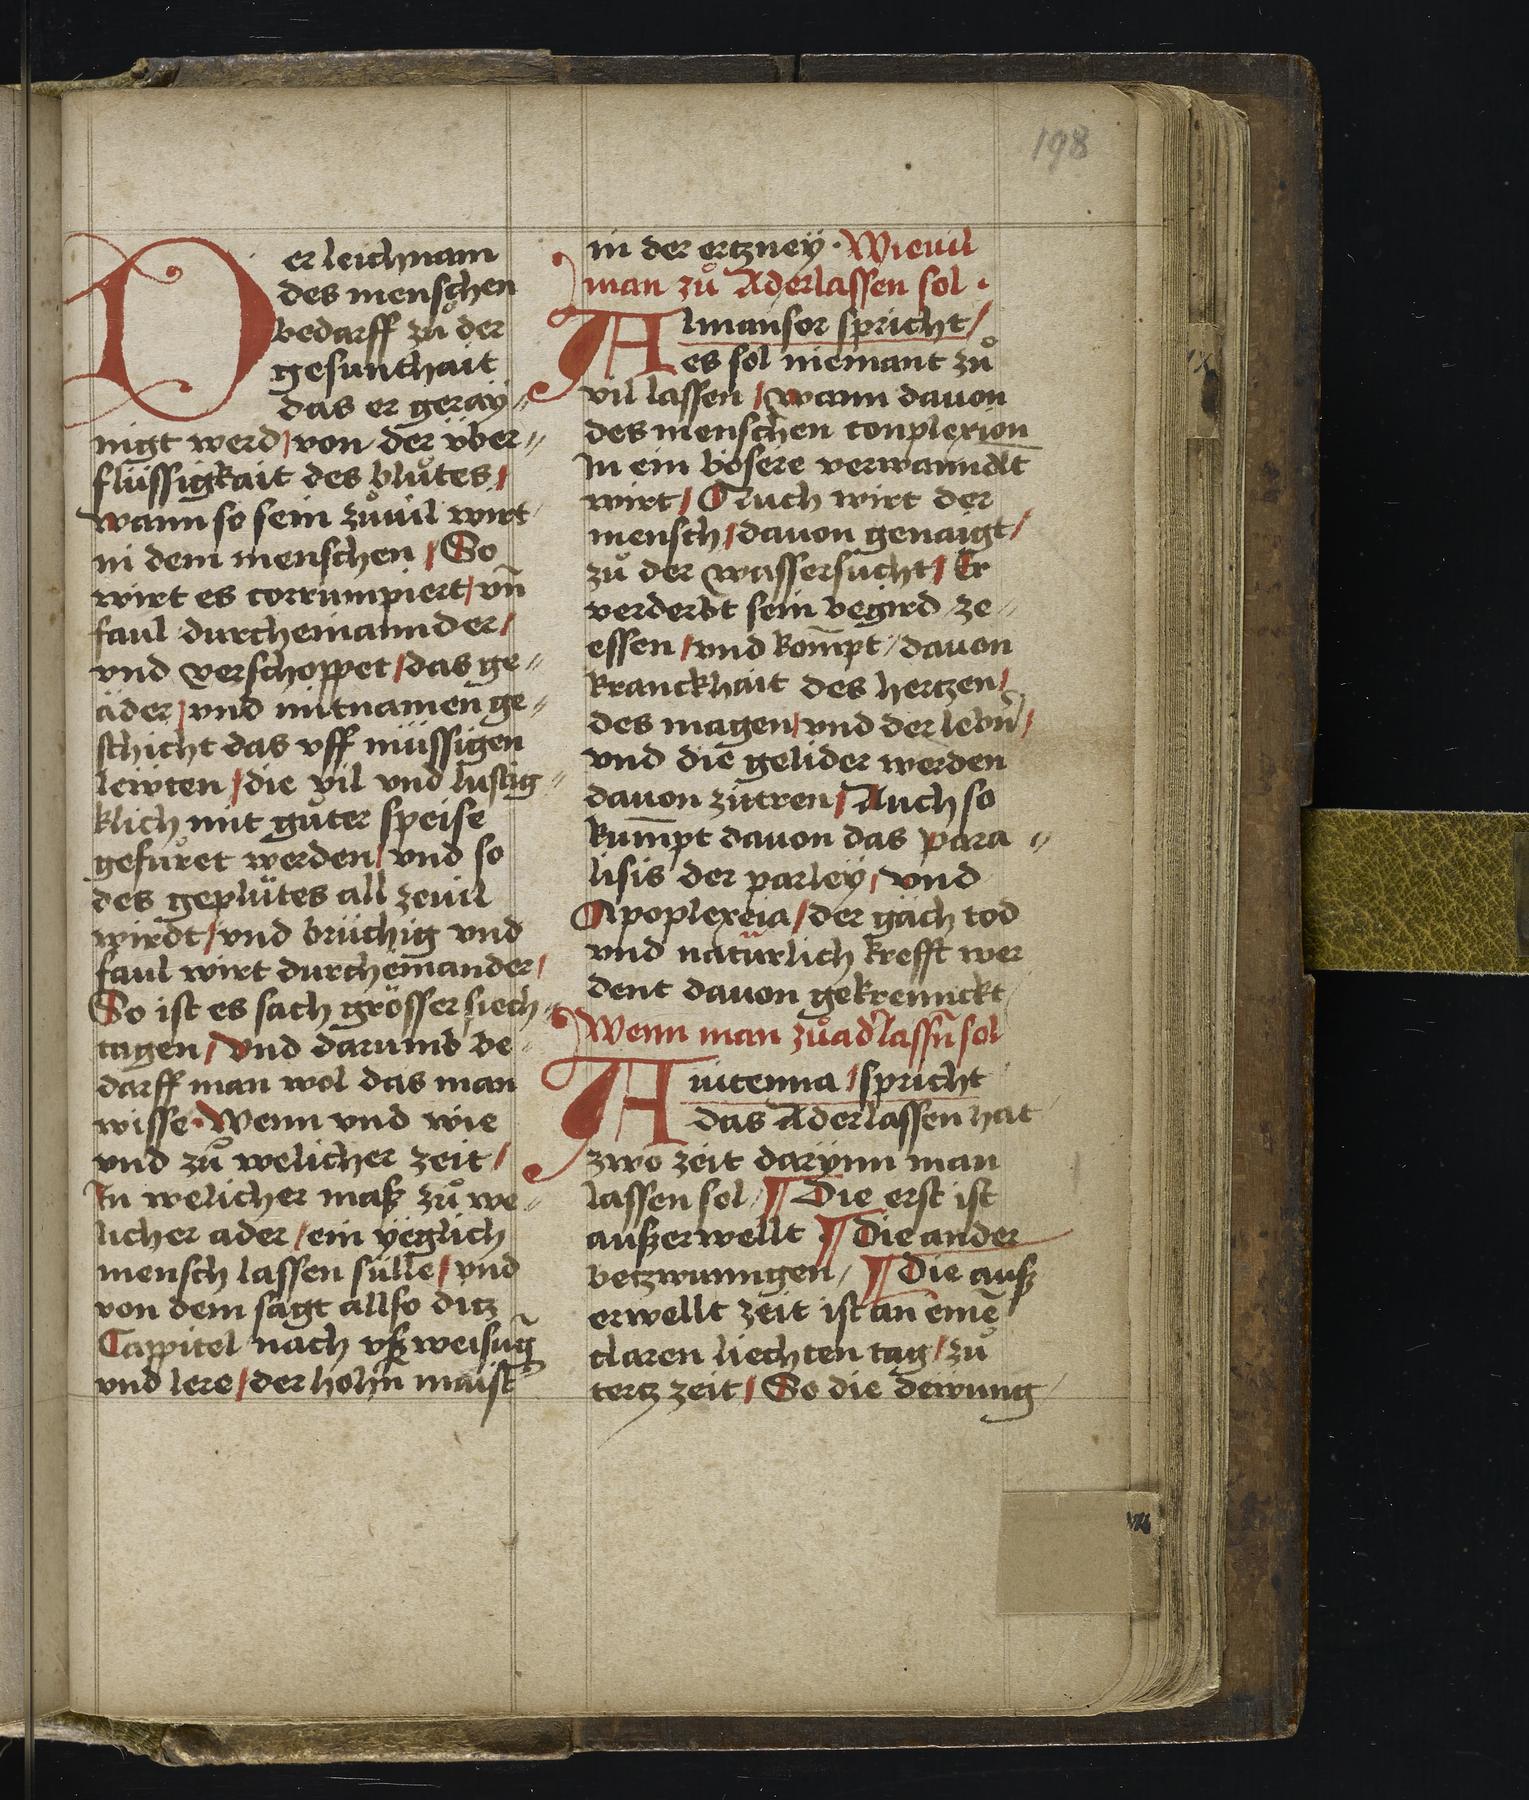 198
Der leichnam
des menschen
bedarff zuͦ der
gesunthait
das er geray〃
nigt werd / von der über〃
flüssigkait des bluͦtes /
wann so sein zuͦuil wirt
in dem menschen / So
wirt es corrumpiert / vn̄
faul durcheinannder /
vnd verschoppet / das ge〃
äder / vnd mitnamen ge〃
schicht das vff müssigen
lewten / die vil vnd lustig〃
klich mit guͦter speise
gefuͦret werden / vnd so
des geplütes all zeuil
wirdt / vnd brüchig vnd
faul wirt durcheinander /
So ist es sach grösser siech〃
tagen / Vnd darumb be〃
darff man wol das man
wisse · Wenn vnd wie
vnd zuͦ welicher zeit /
In welicher maß zuͦ we〃
licher ader / ein yeglich
mensch lassen sülle / vnd
von dem sagt allso ditz
Cappitel nach vßweisūg
vnd lere / der hohn̄ maist̾
in der ertzney · Wieuil
man zuͦ Aderlassen sol ·
Almansor spricht /
es sol niemant zuͦ
vil lassen / wann dauon
des menschen conplexion
In ein bösere verwanndlt
wirt / Auch wirt der
mensch / dauon genaigt /
zuͦ der wassersucht / Er
verderbt sein begird ze〃
essen / vnd kom̄pt / dauon
kranckhait des hertzen /
des magen / vnd der lebn̄ /
vnd die gelider werden
dauon zitren / Auch so
kum̄pt dauon das para〃
lisis der parley / vnd
Apoplexeia / der gäch tod
vnd natürlich krefft wer
dent dauon gekrennckt
Wenn man zuͦ ad̾lassn̄ sol
Auicenna / spricht
das Aderlassen hat
zwo zeit darynn man
lassen sol / ¶ Die erst ist
außerwellt ¶ Die ander
betzwunngen / ¶ Die auß
erwellt zeit ist an einē
claren liechten tag / zuͦ
tertz zeit / So die dewung